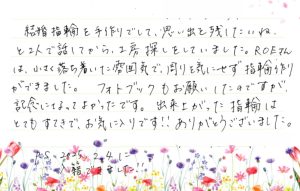 結婚指輪を手作りでして、思い出を残したいね
と2人で話してから、工房探しをしていました。ROEさん
は、小さく落ち着いた雰囲気で、周りを気にせず指輪作り
ができました。フォトブックもお願いしたのですが、
記念になってよかったです。出来上がった指輪は
とてもすてきで、お気に入りです!!ありがとうございました。
P.S. 2025. 2. 4 に